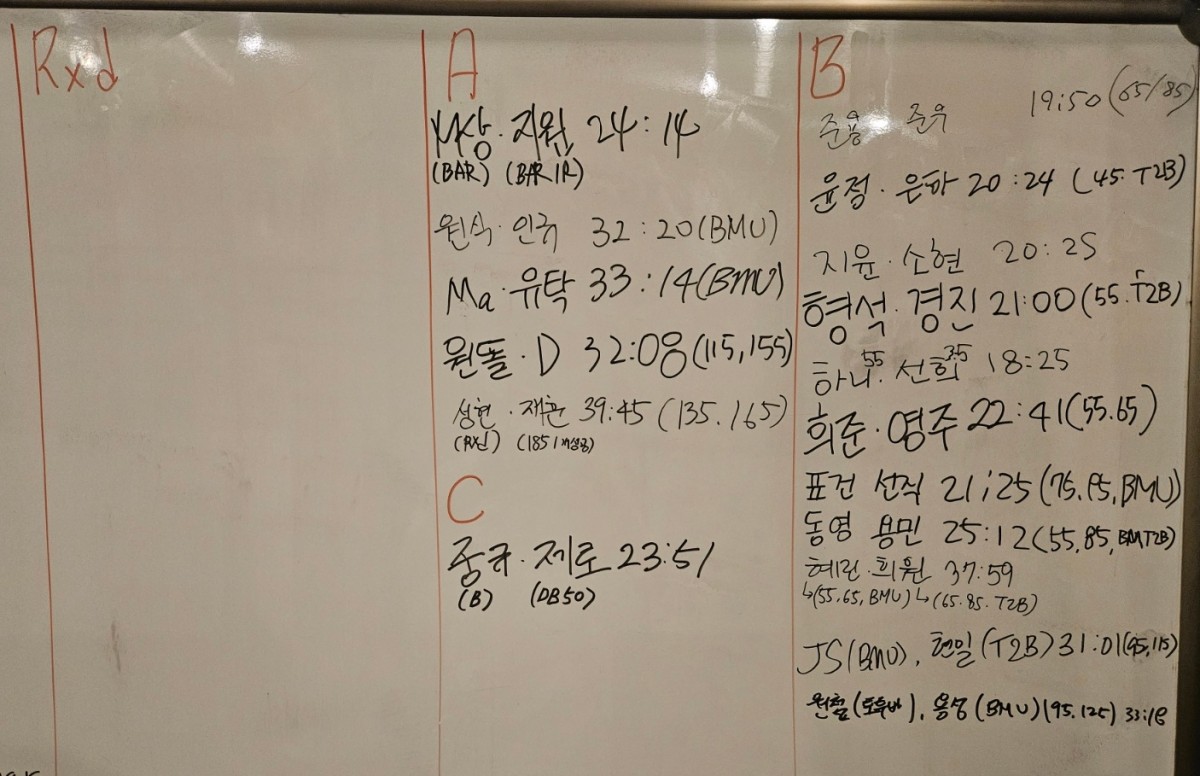 Rxd
A
B
마상·지원 24:14
(BAR) (BAR 1R)
원식·인규 32:20 (BMU)
Ma·유탁 33:14 (BMU)
원똘·D 32:08 (115, 155)
성현·재환 39:45 (135.165)
(185 1개성공)
C
중규·제로 23:51
(B) (DB50)
준용·준우 19:50 (65/85)
윤정·은파 20:24 (45.T2B)
지윤·소현 20:25
형석·경진 21:00 (55.T2B)
하니 55·선희 35 18:25
희준·영주 22:41 (55.65)
표건 선직 21:25 (75, BMU)
동영 용민 25:12 (55, 85, BM T2B)
혜린·희원 37:59
↳(55.65, BMU) ↳(65.85.T2B)
JS (BMU), 현일 (T2B) 31:01 (95, 115)
원철 (토투바), 용성 (BMU) (95.125) 33:18